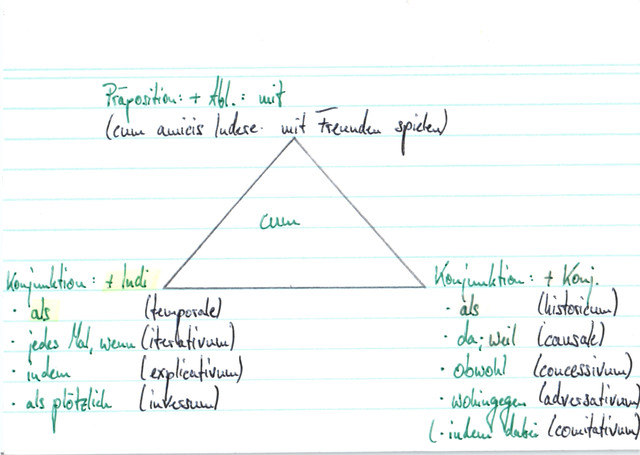 Präposition: + Abl.: mit
(cum amicis ludere: mit Freunden spielen)
cum
Konjunktion: + Indi
· als (temporale)
· jedes Mal, wenn (iterativum)
· indem (explicativum)
· als plötzlich (inversum)
Konjunktion: + Konj.
· als (historicum)
· da; weil (causale)
· obwohl (concessivum)
· wohingegen (adversativum)
(· indem dabei (comitativum)